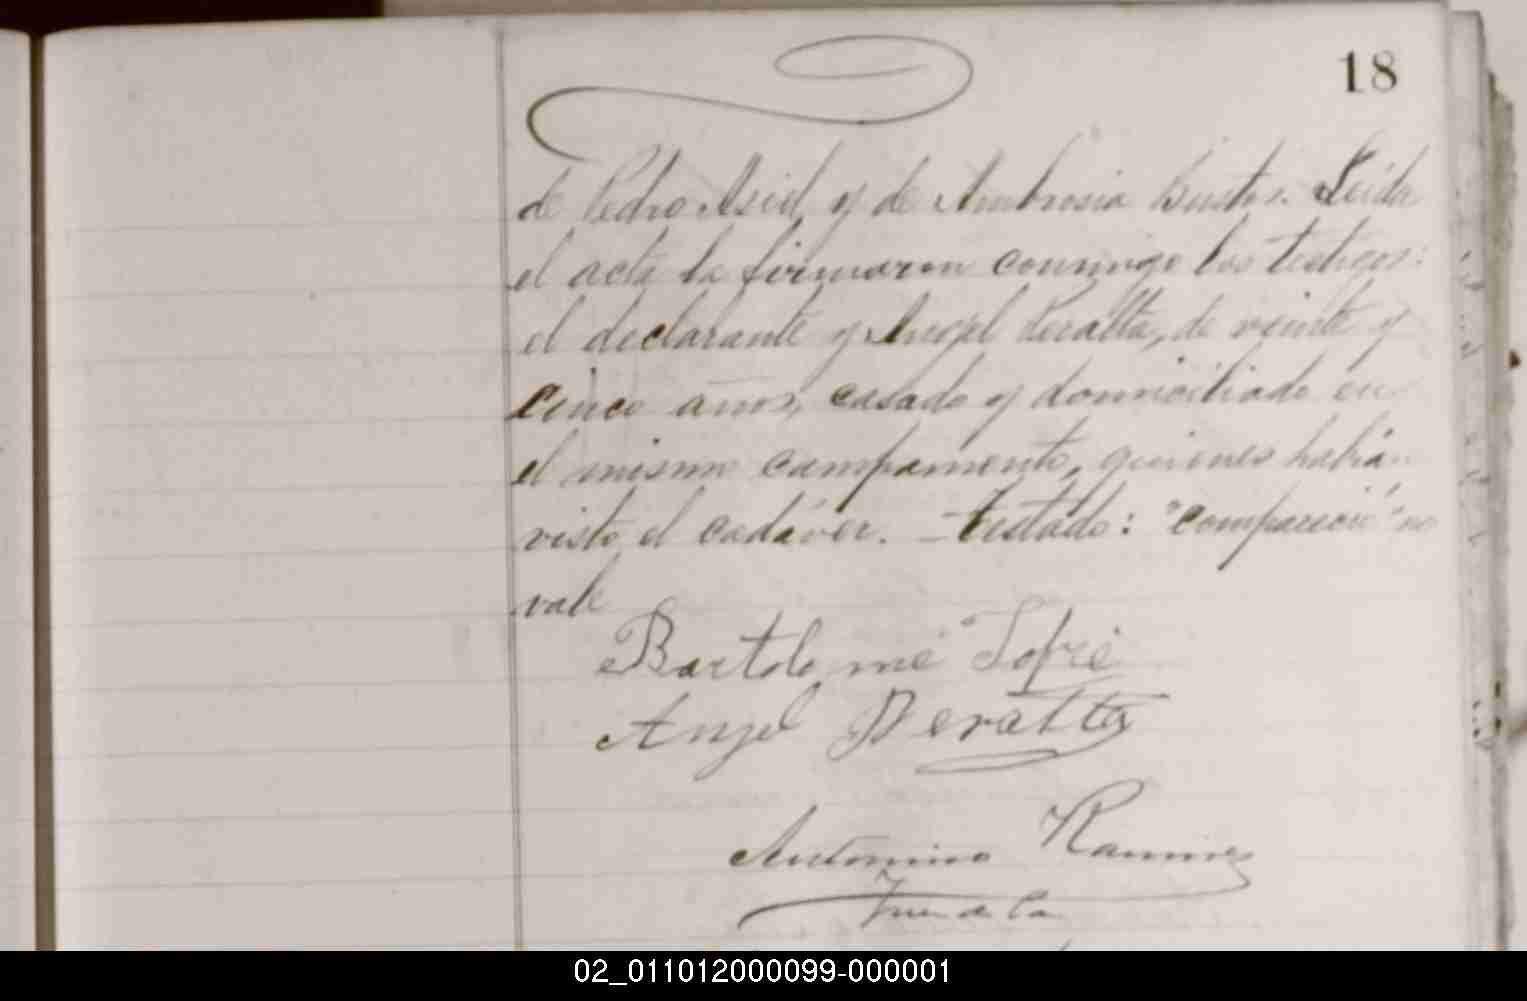 18
de Pedro Asid y de Ambrosia Bustos. Leída
el acta la firmaron conmigo los testigos:
el declarante y Angel Peralta, de veinte y
cinco años, casado y domiciliado en
el mismo campamento, quienes habían
visto el cadáver. - Testado: "compareció" no
vale
Bartolo mé Jofré
Angel Peralta
Antonino Ramirez
02_011012000099-000001